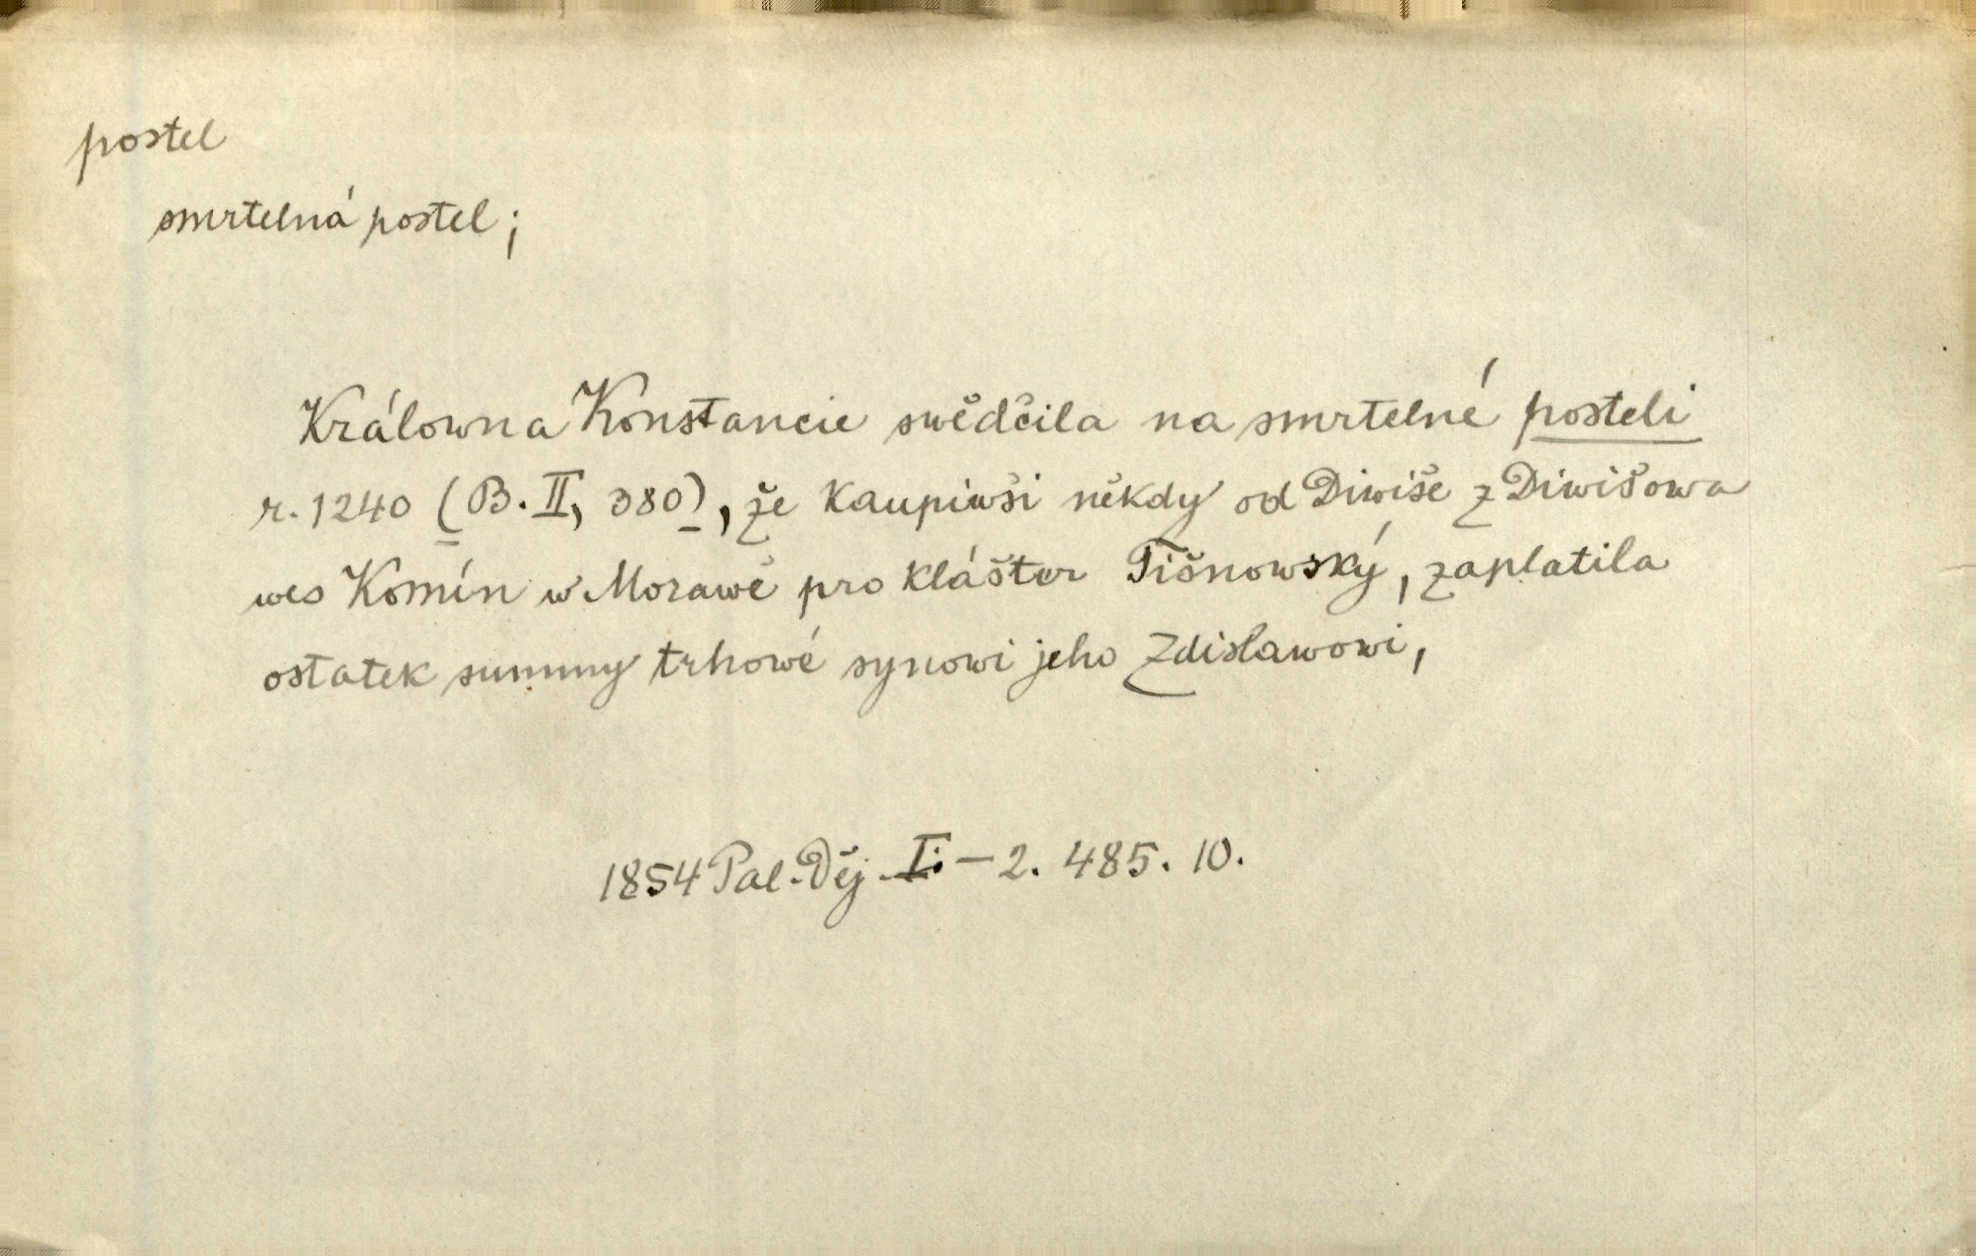 postel
smrtelná postel;
Králowna Konstancie swědčila na smrtelné posteli
r. 1240 (B. II, 380), že kaupiwši někdy od Diwiše z Diwišowa
wes Komín w Morawě pro klášter Tišnowský, zaplatila
ostatek summy trhowé synowi jeho Zdislawowi,
1854 Pal. Děj. I. – 2. 485. 10.